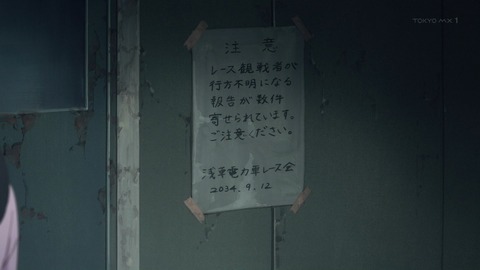 TOKYO MX 1
注意
レース観戦者が
行方不明になる
報告が数件
寄せられています。
ご注意ください。
浅草電力車レース会
2034.9.12